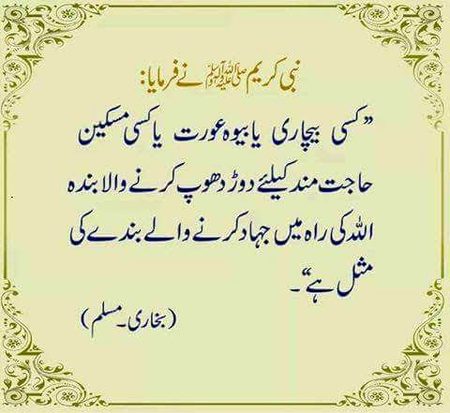 نبی کریم ﷺ نے فرمایا:
”کسی بیچاری یا بیوہ عورت یا کسی مسکین
حاجت مند کیلئے دوڑ دھوپ کرنے والا بندہ
اللہ کی راہ میں جہاد کرنے والے بندے کی
مثل ہے“۔
(بخاری۔مسلم)